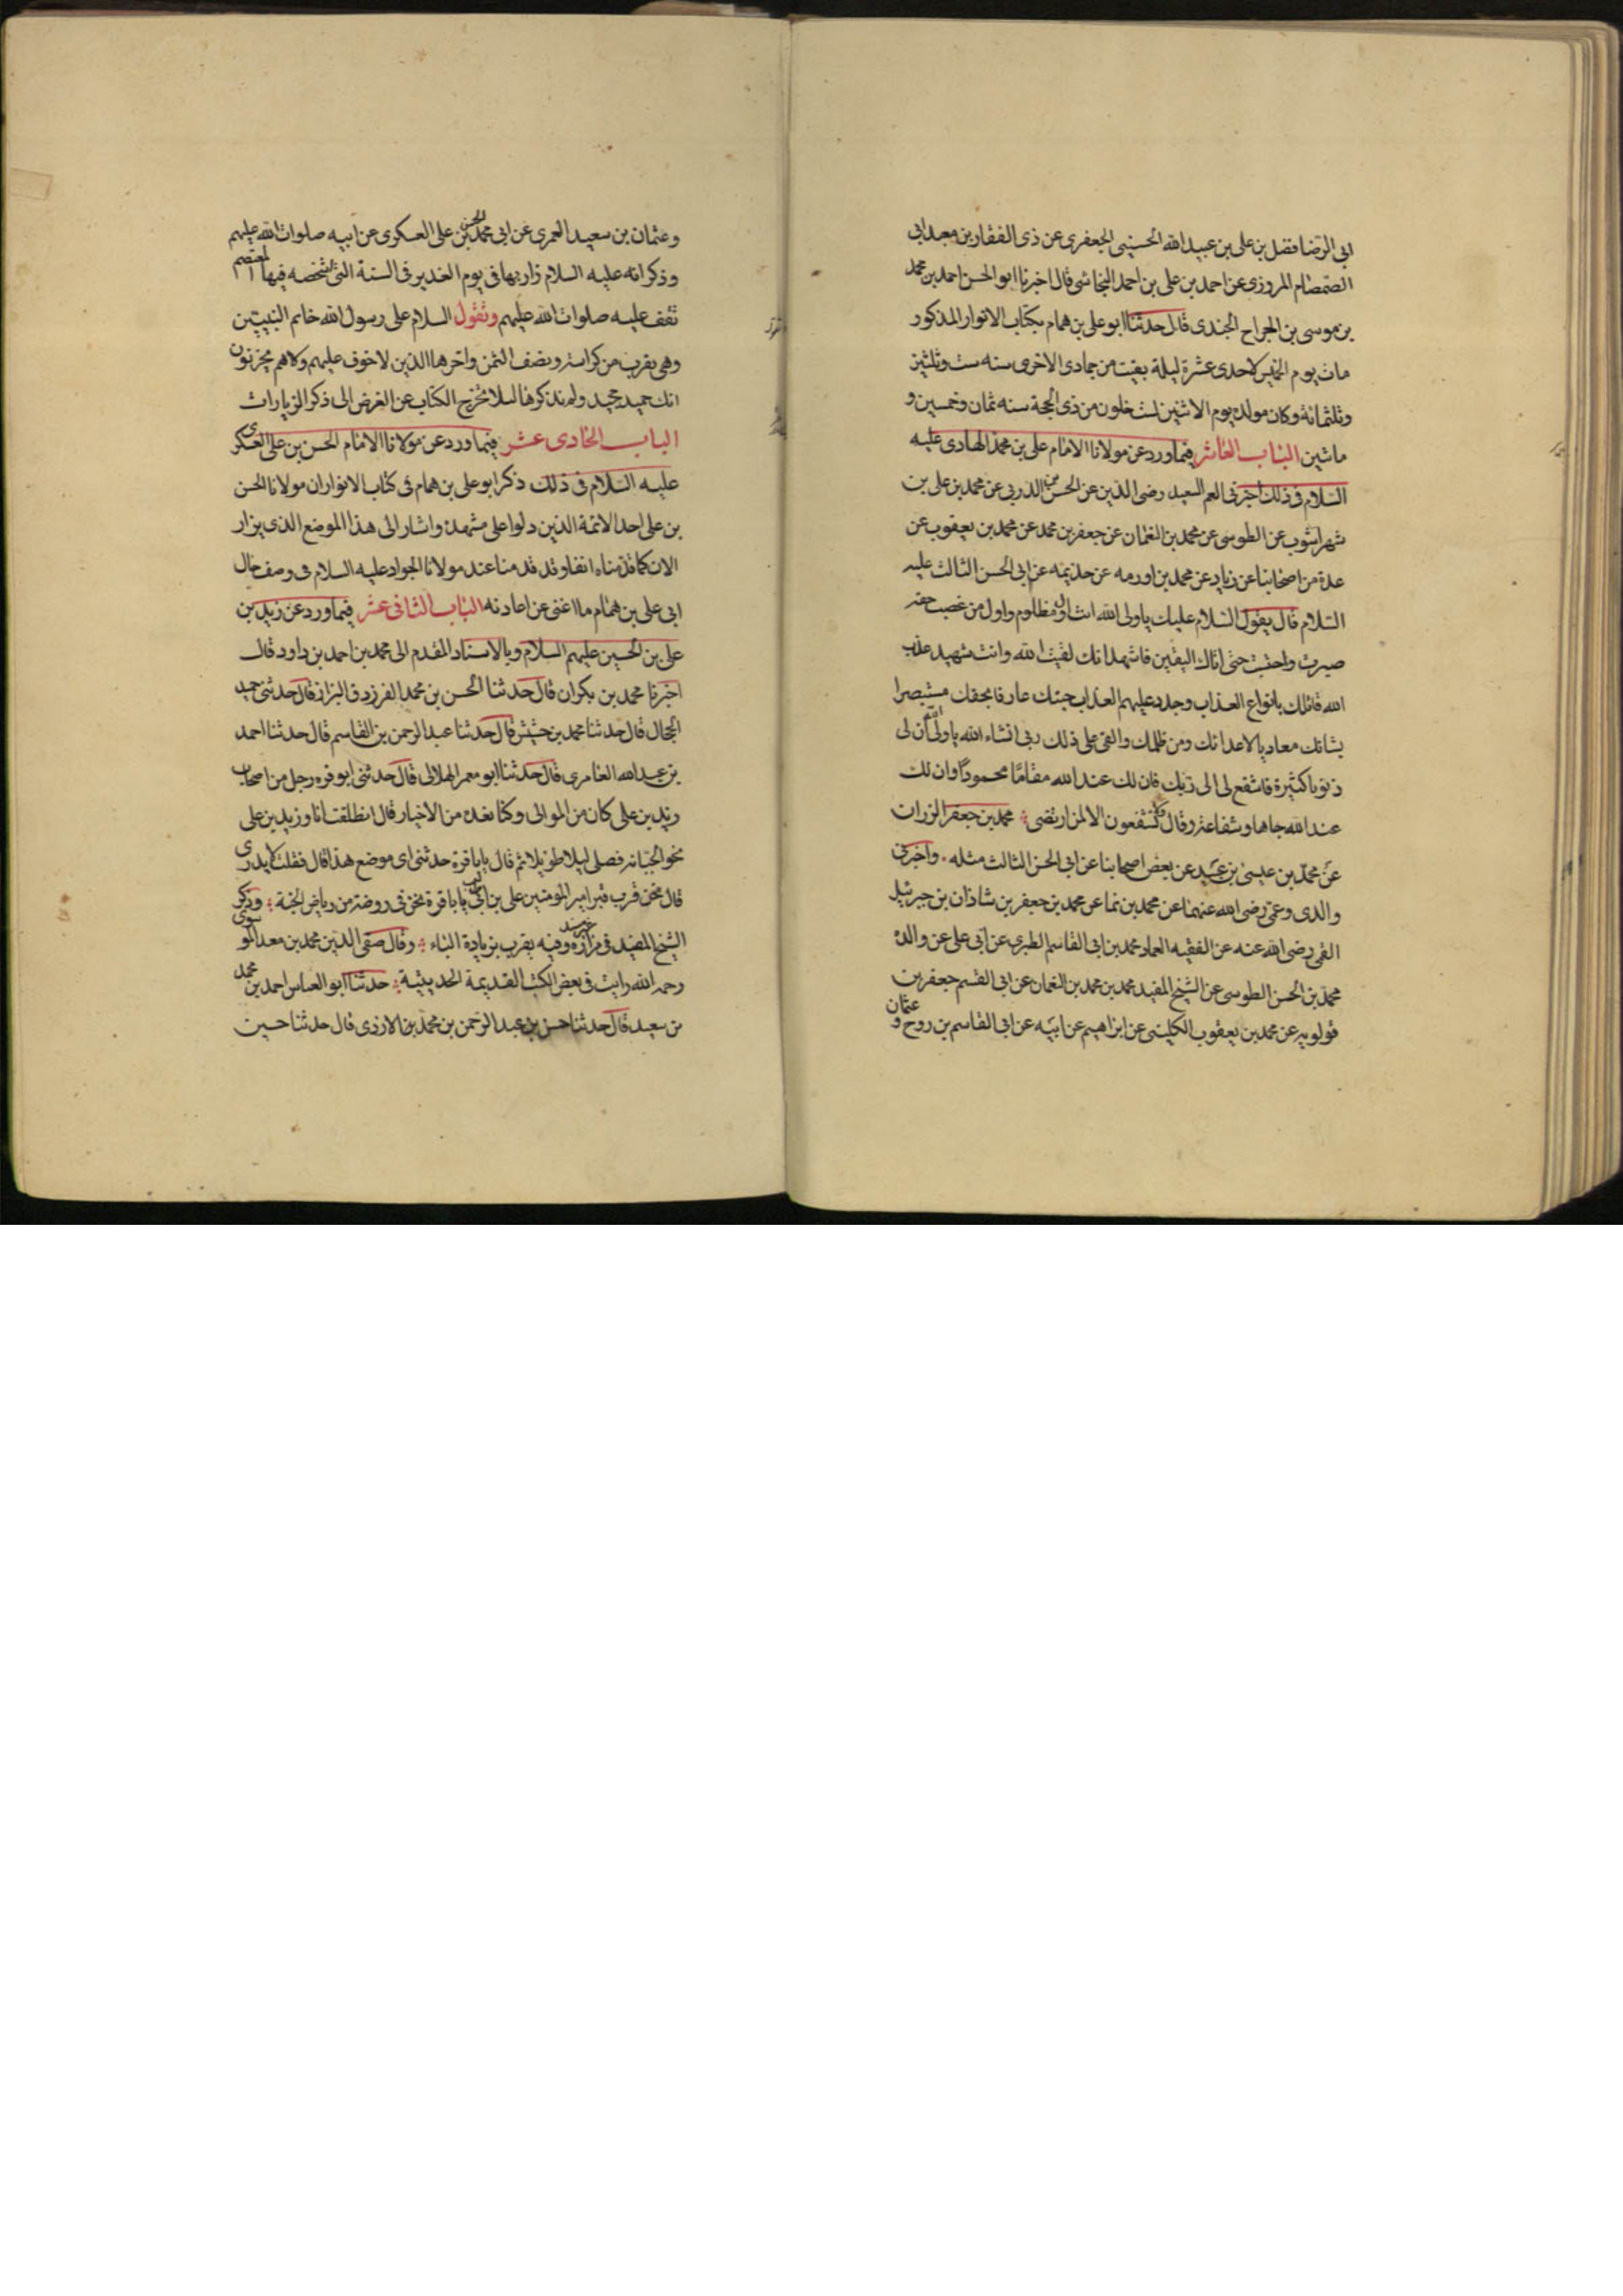 ابى الرضا فضل بن على بن عبيد الله الحسينى الجعفرى عن ذى الفقار بن معبد ابى
الصمصام المروزى عن احمد بن على بن احمد النجاشى قال اخبرنا ابو الحسن احمد بن محمد
بن موسى بن الجراح الجندى قال حدثنا ابو على بن همام بكتاب الانوار المذكور
مات يوم الخميس لاحدى عشرة ليلة بقيت من جمادى الاخرى سنه ست وثلثين
وثلثمائة وكان مولده يوم الاثنين لست خلون من ذى الحجة سنه ثمان وخمسين و
مائتين الباب العاشر فيما ورد عن مولانا الامام على بن محمد الهادى عليه
السلام فى ذلك اخبرنى العم السعيد رضى الدين عن الحسن بن الدربى عن محمد بن على بن
شهراشوب عن الطوسى عن محمد بن النعمان عن جعفر بن محمد عن محمد بن يعقوب عن
عدة من اصحابنا عن زياد عن محمد بن اورمه عن حذيمه عن ابى الحسن الثالث عليه
السلام قال يقول السلام عليك يا ولى الله انت اول مظلوم واول من غصب حقه
صبرت واحتسبت حتى اتاك اليقين فاشهد انك لقيت الله وانت شهيد عذب
الله قاتلك بانواع العذاب وجدد عليهم العذاب جئتك عارفا بحقك مستبصرا
بشانك معاديا لاعدائك ومن ظلمك والقى على ذلك ربى انشاء الله يا ولى الله ان لى
ذنوبا كثيرة فاشفع لى الى ربك فان لك عند الله مقاما محمودا وان لك
عند الله جاها وشفاعة وقال ولا تشفعون الا لمن ارتضى محمد بن جعفر الرزات
عن محمد بن عيسى بن عبيد عن بعض اصحابنا عن ابى الحسن الثالث مثله . واخبرنى
والدى وعمى رضى الله عنهما عن محمد بن نما عن محمد بن جعفر بن شاذان بن جبرئيل
القمى رضى الله عنه عن الفقيه العماد محمد بن ابى القاسم الطبرى عن ابى على عن والده
محمد بن الحسن الطوسى عن الشيخ المفيد محمد بن محمد بن النعمان عن ابى القسم جعفر بن
قولويه عن محمد بن يعقوب الكلينى عن ابراهيم عن ابيه عن ابى القاسم بن روح و عثمان
وعثمان بن سعيد العمرى عن ابى محمد الحسن بن على العسكرى عن ابيه صلوات الله عليهم
وذكر انه عليه السلام زار بها فى يوم الغدير فى السنة التى اشخصه فيها المعتصم
تقف عليه صلوات الله عليهم وتقول السلام على رسول الله خاتم النبيين
وهى يقرب من كراسة ونصف الثمن واخرها الذين لا خوف عليهم ولا هم يحزنون
انك حميد مجيد ولم نذكرها لئلا نخرج الكتاب عن الغرض الى ذكر الزيارات
الباب الحادى عشر فيما ورد عن مولانا الامام الحسن بن على العسكرى
عليه السلام فى ذلك ذكر ابو على بن همام فى كتاب الانوار ان مولانا الحسن
بن على احد الائمة الذين دلوا على مشهده واشار الى هذا الموضع الذى يزار
الان كما قدمناه انفا وقد قدمنا عند مولانا الجواد عليه السلام فى وصف حال
ابى على بن همام ما اغنى عن اعادته الباب الثانى عشر فيما ورد عن زيد بن
على بن الحسين عليهم السلام وبالاسناد المقدم الى محمد بن احمد بن داود قال
اخبرنا محمد بن بكران قال حدثنا الحسن بن محمد الفرزدق البزاز قال حدثنى حميد
الحجال قال حدثنا محمد بن حشيش قال حدثنا عبد الرحمن بن القاسم قال حدثنا احمد
بن عبد الله العامرى قال حدثنا ابو معمر الهلالى قال حدثنى ابو قره رجل من اصحاب
زيد بن على كان من الموالى وكنا نعده من الاخيار قال انطلقت انا وزيد بن على
نحو الجبانه فصلى ليلا طويلا ثم قال يا باقرة حدثنى اى موضع هذا قال فقلت لا ندرى
قال نحن قرب قبر امير المؤمنين على بن ابى طالب يا باقرة نحن فى روضة من رياض الجنة وذكر
الشيخ المفيد فى مزاره وفيه يقرب بزيادة الباء وقال صفى الدين محمد بن معد الموسوى
رحمه الله رايت فى بعض الكتب القديمة الحديثية حدثنا ابو العباس احمد بن محمد
بن سعيد قال حدثنا حسن بن عبد الرحمن بن محمد بن الازدى قال حدثنا حسين